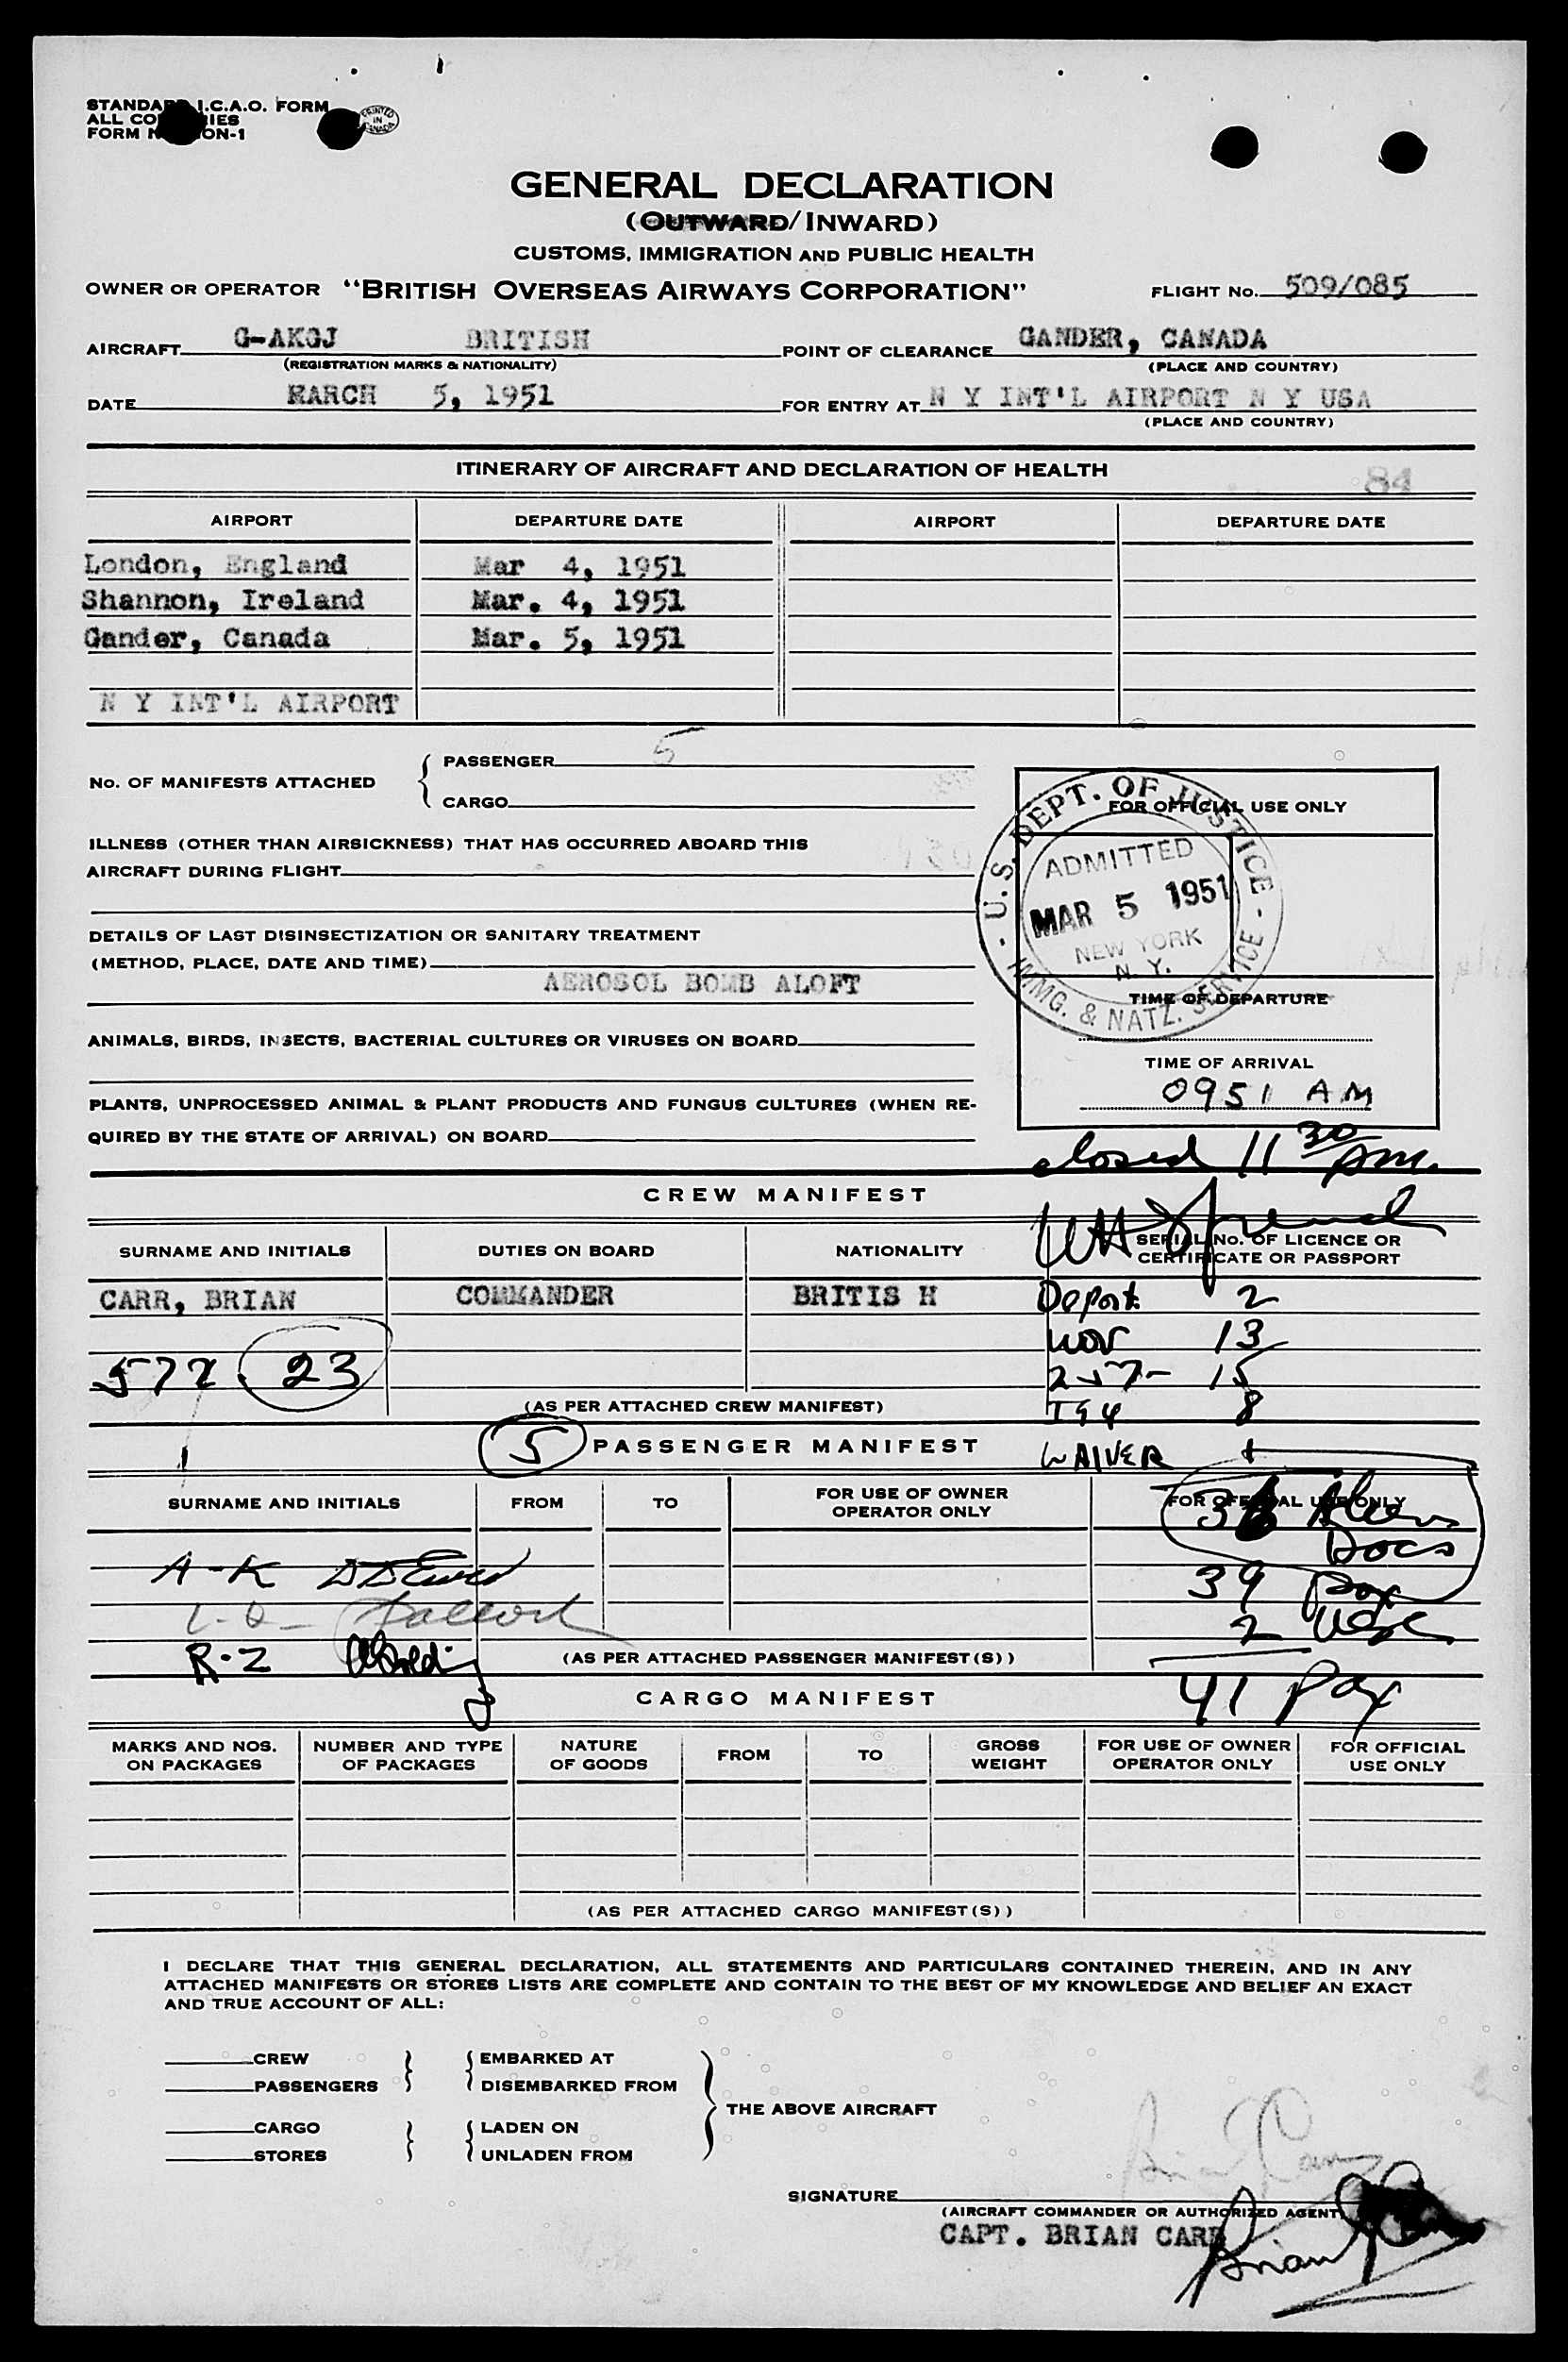 STANDARD I.C.A.O. FORM
ALL COUNTRIES
FORM ON-1
PRINTED IN CANADA
GENERAL DECLARATION
(OUTWARD/INWARD)
CUSTOMS, IMMIGRATION AND PUBLIC HEALTH
OWNER OR OPERATOR "BRITISH OVERSEAS AIRWAYS CORPORATION" FLIGHT No. 509/085
AIRCRAFT G-AKGJ BRITISH POINT OF CLEARANCE GANDER, CANADA
(REGISTRATION MARKS & NATIONALITY) (PLACE AND COUNTRY)
DATE MARCH 5, 1951 FOR ENTRY AT N Y INT'L AIRPORT N Y USA
(PLACE AND COUNTRY)
ITINERARY OF AIRCRAFT AND DECLARATION OF HEALTH 84
AIRPORT DEPARTURE DATE AIRPORT DEPARTURE DATE
London, England Mar 4, 1951
Shannon, Ireland Mar. 4, 1951
Gander, Canada Mar. 5, 1951
N Y INT'L AIRPORT
No. OF MANIFESTS ATTACHED
PASSENGER 5
CARGO
FOR OFFICIAL USE ONLY
U.S. DEPT. OF JUSTICE - IMMG. & NATZ. SERVICE -
ADMITTED
MAR 5 1951
NEW YORK
N. Y.
ILLNESS (OTHER THAN AIRSICKNESS) THAT HAS OCCURRED ABOARD THIS
AIRCRAFT DURING FLIGHT
DETAILS OF LAST DISINSECTIZATION OR SANITARY TREATMENT
(METHOD, PLACE, DATE AND TIME)
AEROSOL BOMB ALOFT
TIME OF DEPARTURE
ANIMALS, BIRDS, INSECTS, BACTERIAL CULTURES OR VIRUSES ON BOARD
TIME OF ARRIVAL
0951 AM
PLANTS, UNPROCESSED ANIMAL & PLANT PRODUCTS AND FUNGUS CULTURES (WHEN RE-
QUIRED BY THE STATE OF ARRIVAL) ON BOARD
closed 11 30 AM.
CREW MANIFEST
SURNAME AND INITIALS DUTIES ON BOARD NATIONALITY SERIAL No. OF LICENCE OR
CERTIFICATE OR PASSPORT
CARR, BRIAN COMMANDER BRITIS H Deport. 2
13
23 257- 15
(AS PER ATTACHED CREW MANIFEST) 8
5 PASSENGER MANIFEST WAIVER
SURNAME AND INITIALS FROM TO FOR USE OF OWNER
OPERATOR ONLY FOR OFFICIAL USE ONLY
Aliens
Docs
A-K 39 Pax
2 USC
R-Z (AS PER ATTACHED PASSENGER MANIFEST(S))
CARGO MANIFEST 41 Pax
MARKS AND NOS.
ON PACKAGES NUMBER AND TYPE
OF PACKAGES NATURE
OF GOODS FROM TO GROSS
WEIGHT FOR USE OF OWNER
OPERATOR ONLY FOR OFFICIAL
USE ONLY
(AS PER ATTACHED CARGO MANIFEST(S))
I DECLARE THAT THIS GENERAL DECLARATION, ALL STATEMENTS AND PARTICULARS CONTAINED THEREIN, AND IN ANY
ATTACHED MANIFESTS OR STORES LISTS ARE COMPLETE AND CONTAIN TO THE BEST OF MY KNOWLEDGE AND BELIEF AN EXACT
AND TRUE ACCOUNT OF ALL:
CREW EMBARKED AT
PASSENGERS DISEMBARKED FROM
THE ABOVE AIRCRAFT
CARGO LADEN ON
STORES UNLADEN FROM
SIGNATURE
(AIRCRAFT COMMANDER OR AUTHORIZED AGENT)
CAPT. BRIAN CARR